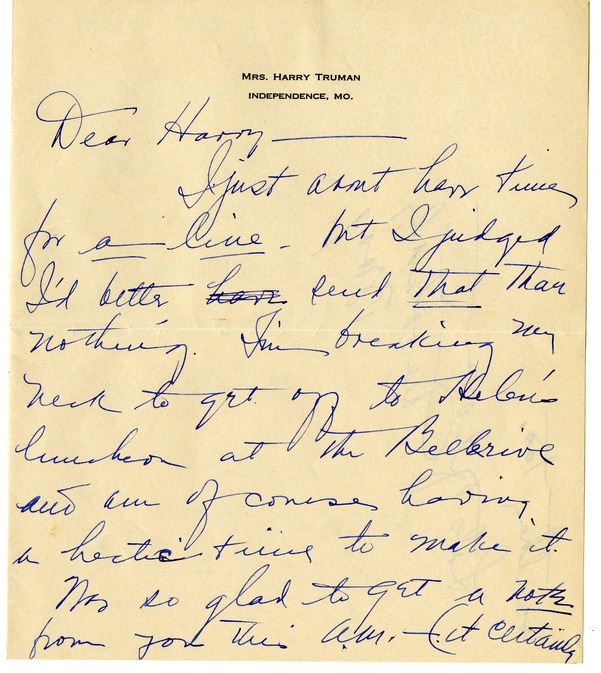 MRS. HARRY TRUMAN
INDEPENDENCE, MO.
Dear Harry —
I just about have time
for a line - but I judged
I'd better have send that than
nothing. I'm breaking my
neck to get off to Helen's
luncheon at the Bellerive
and am of course having
a hectic time to make it.
Was so glad to get a note
from you this a.m. - (it certainly